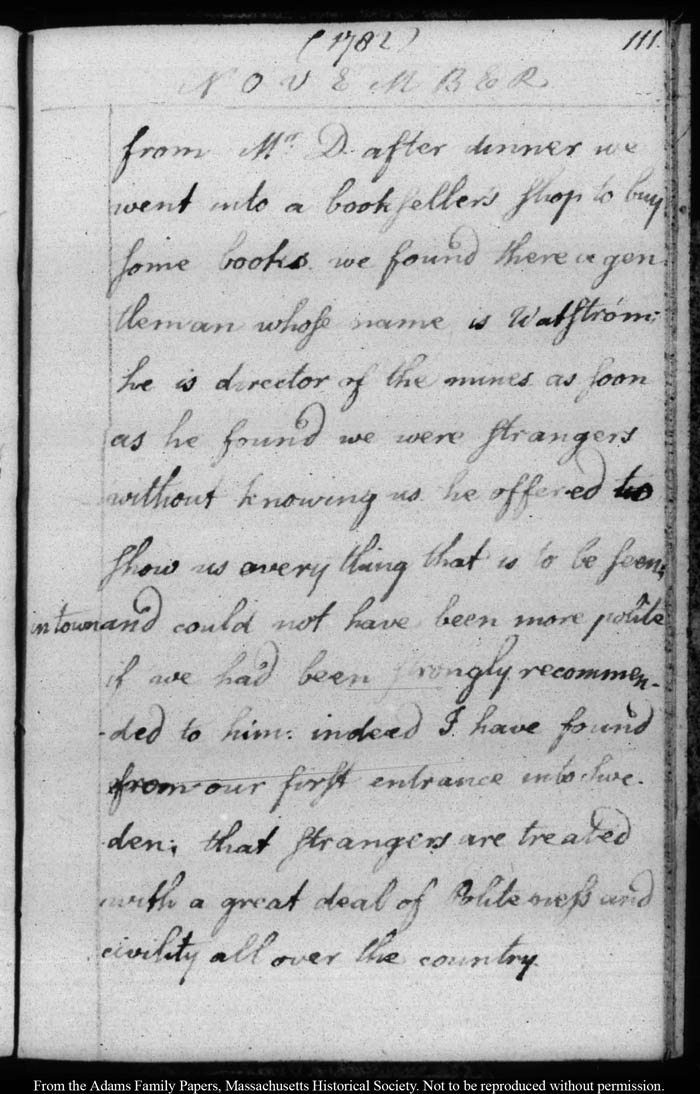 (1782) 111.
NOVEMBER
from Mr. D. after dinner we
went into a bookſeller's ſhop to buy
ſome books. we found there a gen
tleman whoſe name is Watſtrom;
he is director of the mines. as ſoon
as he found we were ſtrangers
without knowing us he offered to
ſhow us every thing that is to be ſeen;
in town and could not have been more polite
if we had been ſtrongly recommen-
-ded to him: indeed I have found
from our firſt entrance into Swe-
den; that ſtrangers are treated
with a great deal of Politeneſs and
civility all over the country.
From the Adams Family Papers, Massachusetts Historical Society. Not to be reproduced without permission.